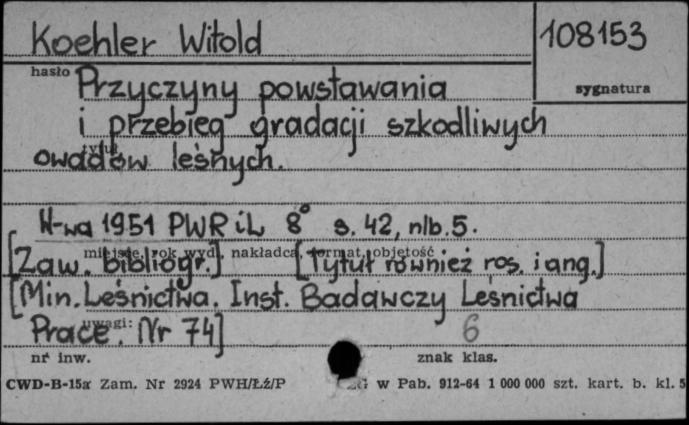 Koehler Witold
108153
hasło
sygnatura
Przyczyny powstawania
i przebieg gradacji szkodliwych
tytuł
owadów leśnych.
W-wa 1951 PWRiL 8° s. 42, nlb. 5.
miejsce, rok wyd., nakładca, format, objętość
[Zaw. bibliogr.] [Tytuł również ros. i ang.]
[Min. Leśnictwa. Inst. Badawczy Leśnictwa
uwagi:
Prace. Nr 74]
6
nr inw.
znak klas.
CWD-B-15a Zam. Nr 2924 PWH/Łź/P
w Pab. 912-64 1 000 000 szt. kart. b. kl. 5